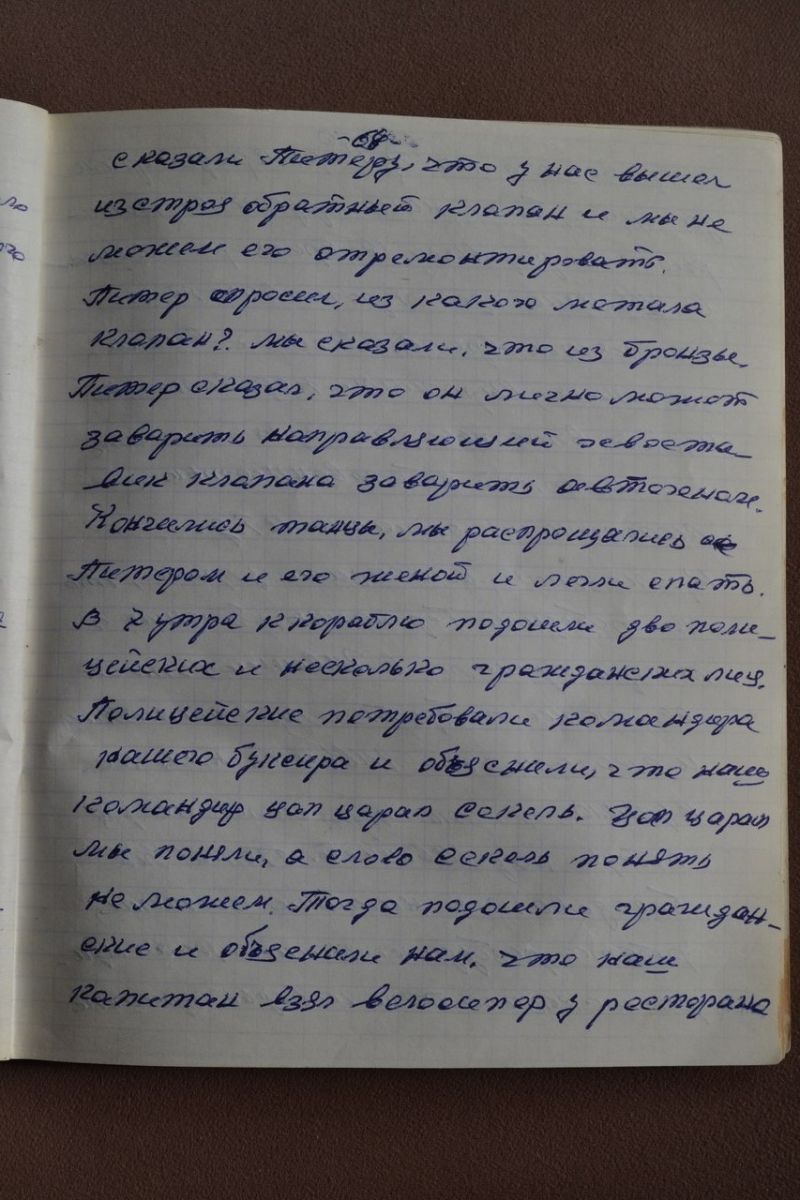 -68-
сказали Питеру, что у нас вышел
из строя обратный клапан и мы не
можем его отремонтировать.
Питер спросил, из какого метала
клапан? Мы сказали, что из бронзы.
Питер сказал, что он лично может
заварить направляющий хвоста-
вик клапана заварить автогеном.
Кончились танцы, мы распрощались с
Питером и его женой и легли спать.
В 7 утра к кораблю подошли двое поли-
цейских и несколько гражданских лиц.
Полицейские потребовали командира
нашего буксира и объяснили, что наш
командир цап царап секель. Цап царап
мы поняли, а слово секель понять
не можем. Тогда подошли граждан-
ские и объяснили нам, что наш
капитан взял велосипед у ресторана